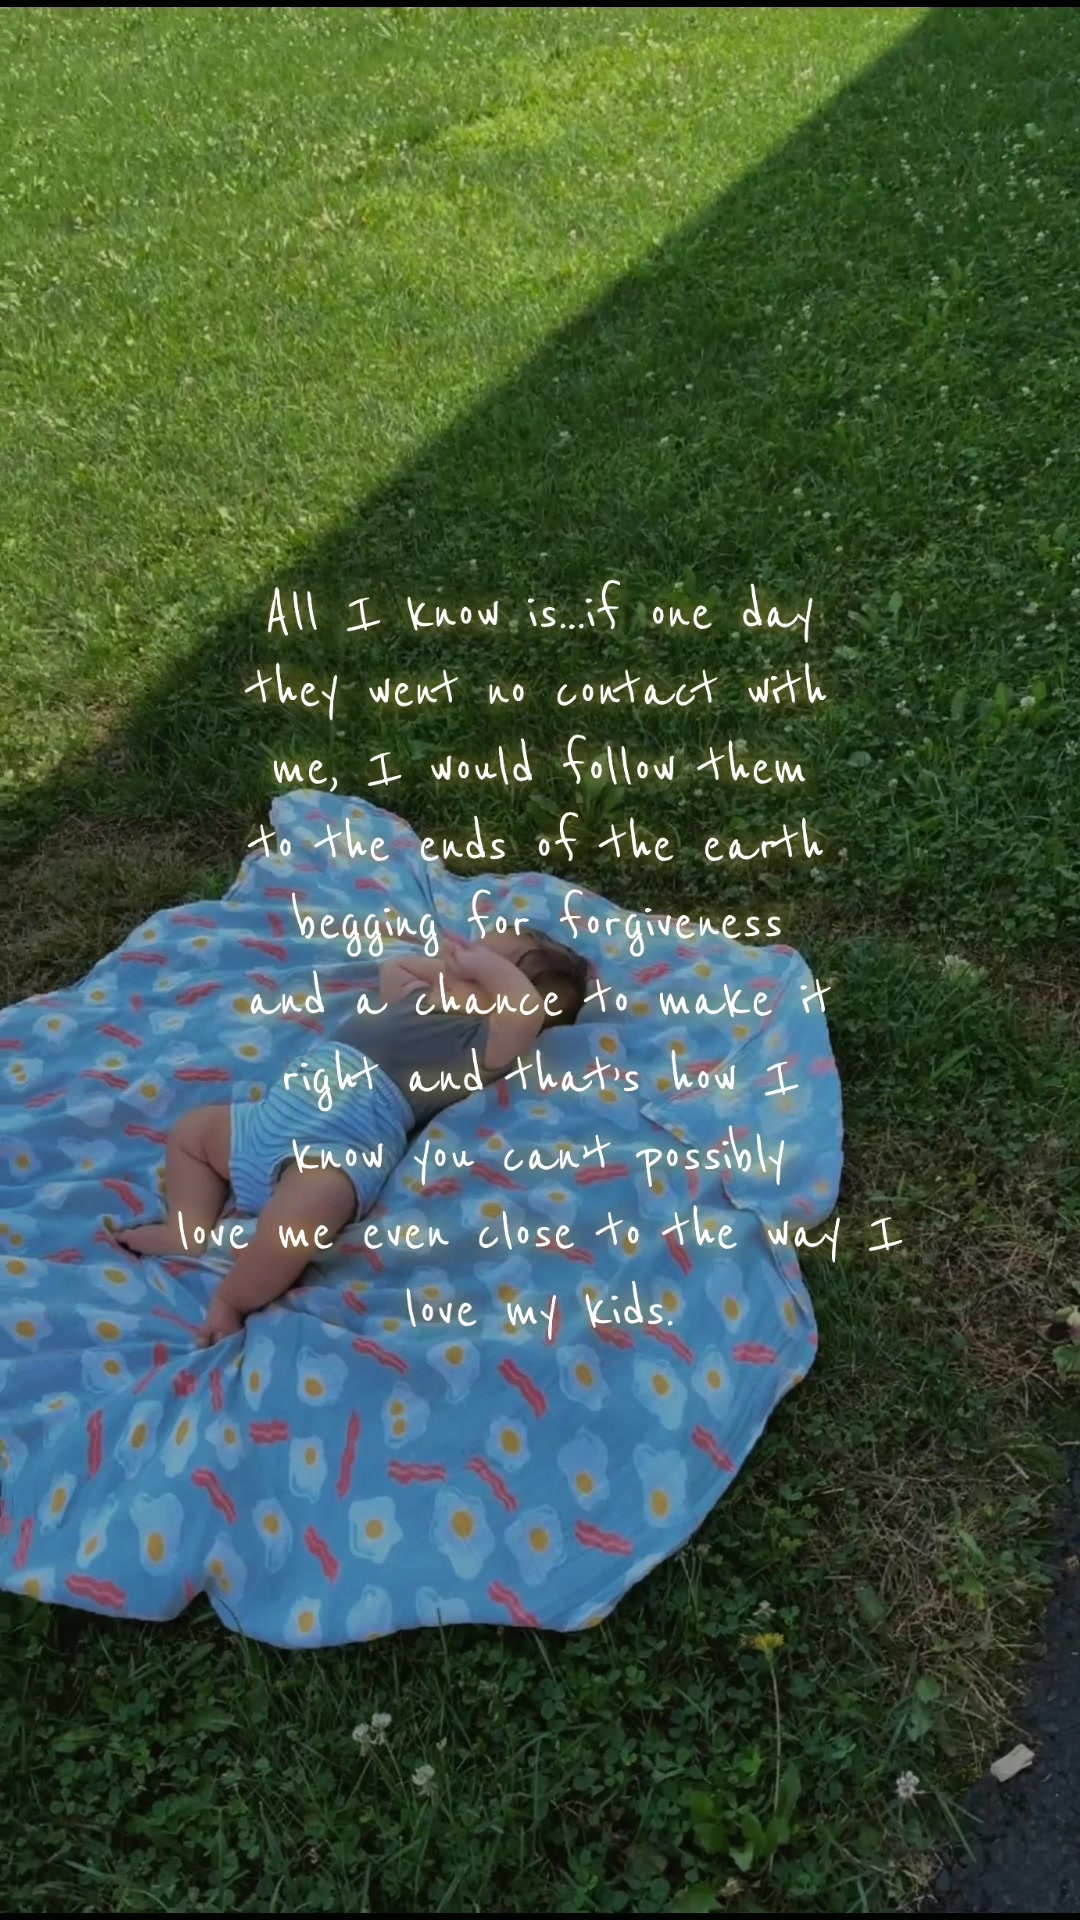 All I know is...if one day
they went no contact with
me, I would follow them
to the ends of the earth
begging for forgiveness
and a chance to make it
right and that's how I
know you can't possibly
love me even close to the way I
love my kids.